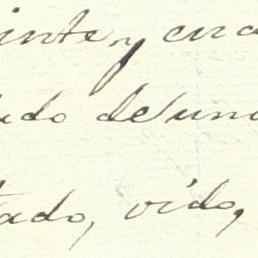 inte y cua
ado de una
tado, vido,